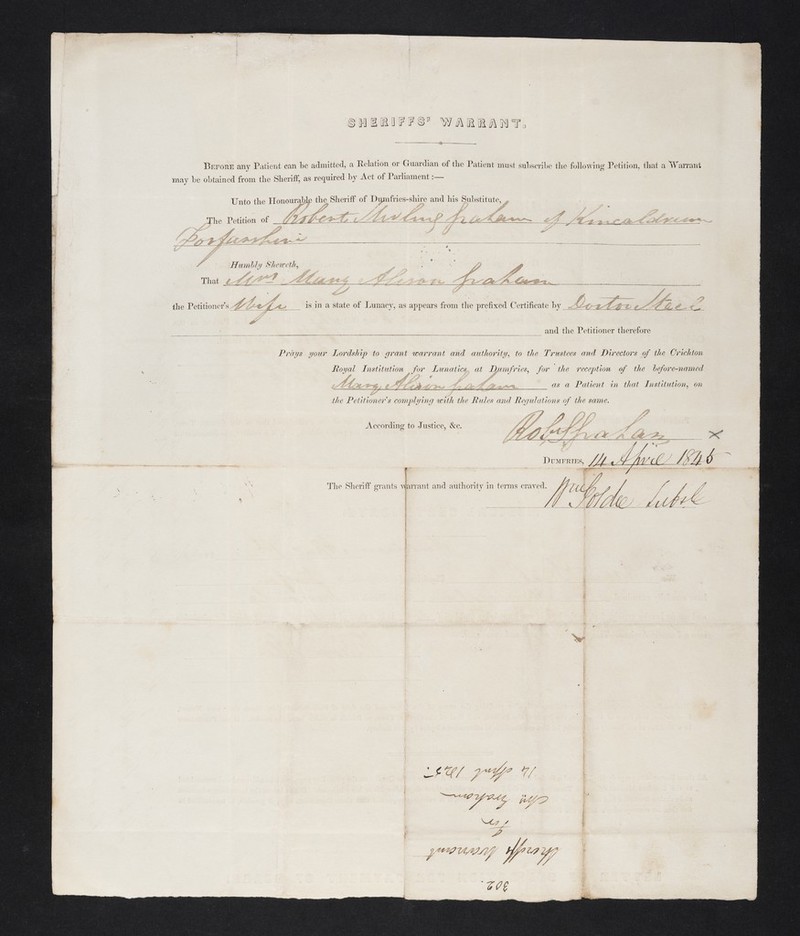 SHERIFFS' WARRANT.
BEFORE any Patient can be admitted, a Relation or Guardian of the Patient must subscribe the following Petition, that a Warrant
may be obtained from the Sheriff, as required by Act of Parliament :—
Unto the Honourable the Sheriff of Dumfries-shire and his Substitute,
The Petition of Robert Stirling Graham of Kincaldrum
Forfarshire
Humbly Sheweth,
That Mrs Mary Alison Graham
the Petitioner's Wife is in a state of Lunacy, as appears from the prefixed Certificate by Doctor Steel
and the Petitioner therefore
Prays your Lordship to grant warrant and authority, to the Trustees and Directors of the Crichton
Royal Institution for Lunatics, at Dumfries, for the reception of the before-named
Mary Alison Graham as a Patient in that Institution, on
the Petitioner's complying with the Rules and Regulations of the same.
According to Justice, &c.
Robt Graham x
DUMFRIES, 14 April 1845
The Sheriff grants warrant and authority in terms craved.
Wm Goldie Subst
302.
Sheriffs Warrant
for
Mrs Graham
14 April 1845.